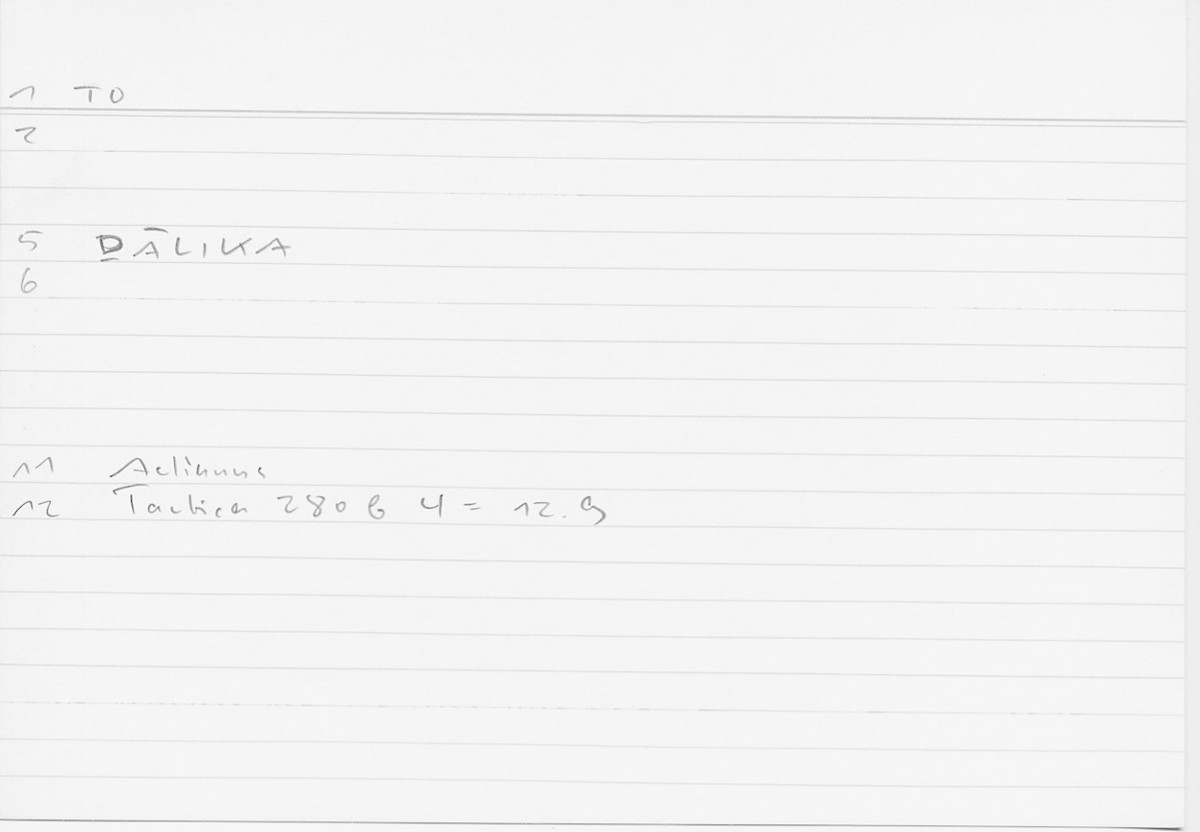 1 TO
2
5 D̲ĀLIKA
6
11 Aelianus
12 Tactica 280 b 4 = 12.9